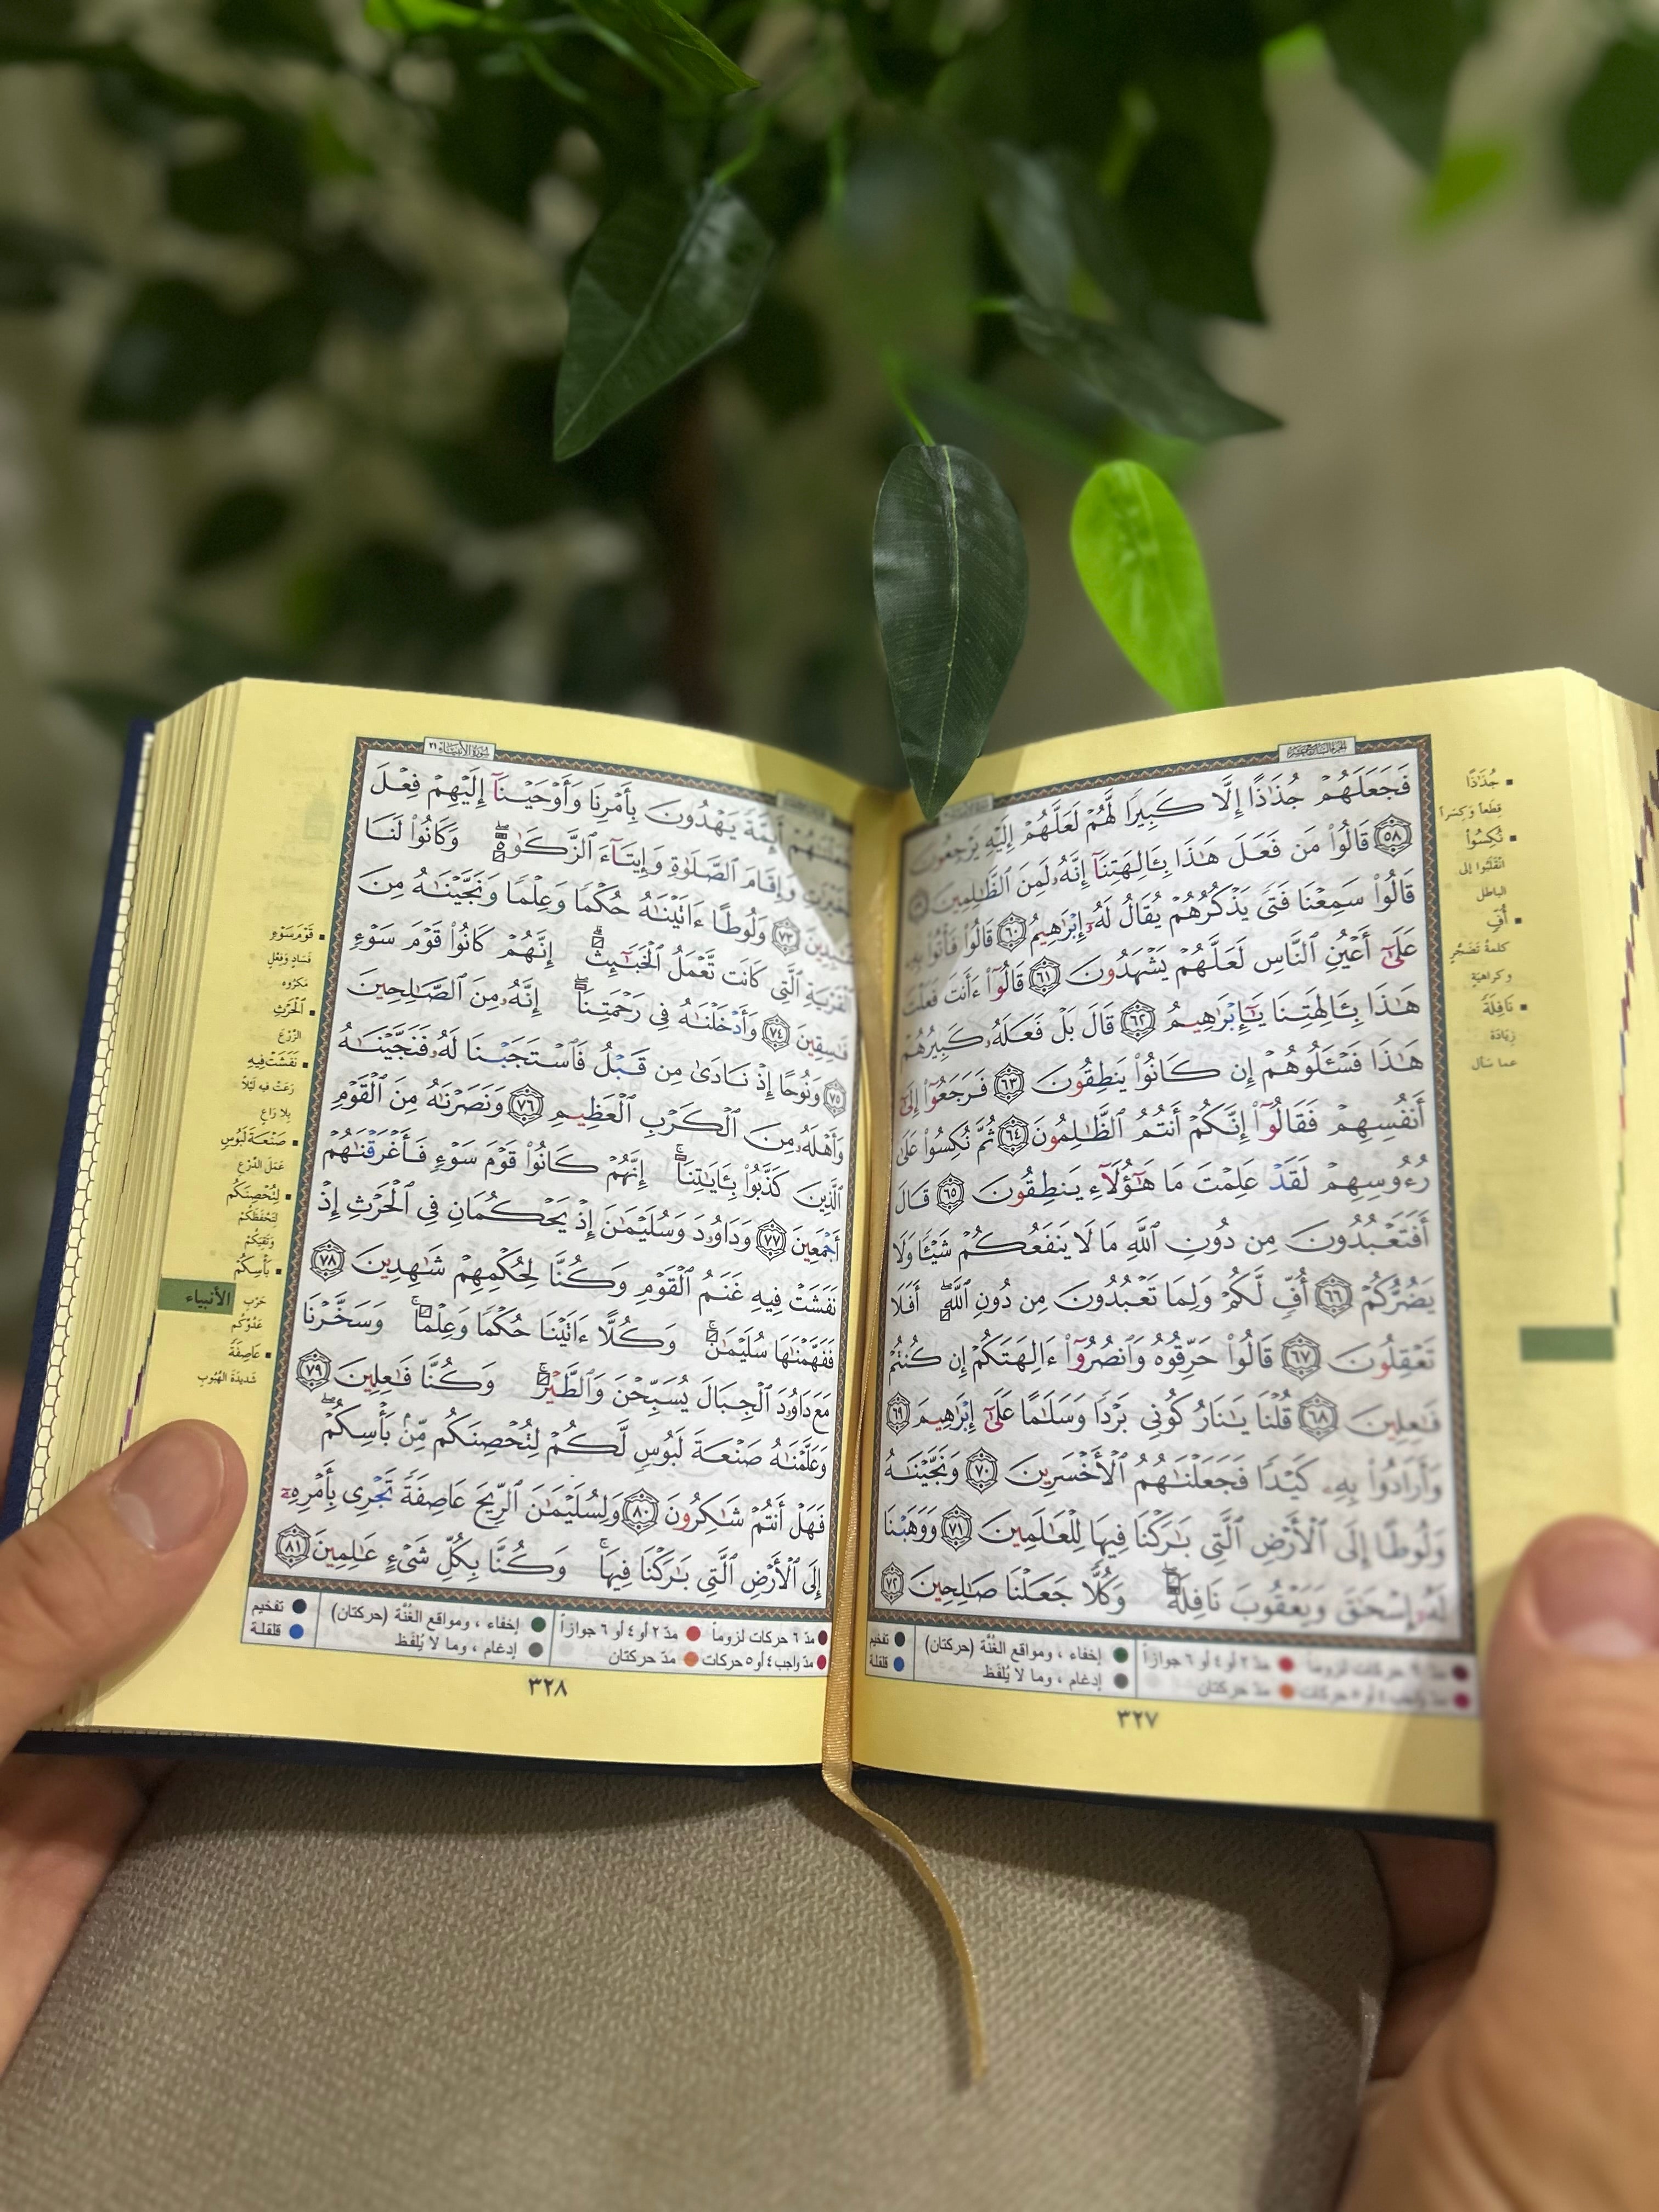 فَجَعَلَهُمْ جُذَٰذًا إِلَّا كَبِيرًا لَّهُمْ لَعَلَّهُمْ إِلَيْهِ يَرْجِعُونَ
٥٨ قَالُوا۟ مَن فَعَلَ هَٰذَا بِـَٔالِهَتِنَآ إِنَّهُۥ لَمِنَ ٱلظَّٰلِمِينَ
قَالُوا۟ سَمِعْنَا فَتًى يَذْكُرُهُمْ يُقَالُ لَهُۥٓ إِبْرَٰهِيمُ ٦٠ قَالُوا۟ فَأْتُوا۟ بِهِۦ
عَلَىٰٓ أَعْيُنِ ٱلنَّاسِ لَعَلَّهُمْ يَشْهَدُونَ ٦١ قَالُوٓا۟ ءَأَنتَ فَعَلْتَ
هَٰذَا بِـَٔالِهَتِنَا يَٰٓإِبْرَٰهِيمُ ٦٢ قَالَ بَلْ فَعَلَهُۥ كَبِيرُهُمْ
هَٰذَا فَسْـَٔلُوهُمْ إِن كَانُوا۟ يَنطِقُونَ ٦٣ فَرَجَعُوٓا۟ إِلَىٰٓ
أَنفُسِهِمْ فَقَالُوٓا۟ إِنَّكُمْ أَنتُمُ ٱلظَّٰلِمُونَ ٦٤ ثُمَّ نُكِسُوا۟ عَلَىٰ
رُءُوسِهِمْ لَقَدْ عَلِمْتَ مَا هَٰٓؤُلَآءِ يَنطِقُونَ ٦٥ قَالَ
أَفَتَعْبُدُونَ مِن دُونِ ٱللَّهِ مَا لَا يَنفَعُكُمْ شَيْـًٔا وَلَا
يَضُرُّكُمْ ٦٦ أُفٍّ لَّكُمْ وَلِمَا تَعْبُدُونَ مِن دُونِ ٱللَّهِ ۖ أَفَلَا
تَعْقِلُونَ ٦٧ قَالُوا۟ حَرِّقُوهُ وَٱنصُرُوٓا۟ ءَالِهَتَكُمْ إِن كُنتُمْ
فَٰعِلِينَ ٦٨ قُلْنَا يَٰنَارُ كُونِى بَرْدًا وَسَلَٰمًا عَلَىٰٓ إِبْرَٰهِيمَ ٦٩
وَأَرَادُوا۟ بِهِۦ كَيْدًا فَجَعَلْنَٰهُمُ ٱلْأَخْسَرِينَ ٧٠ وَنَجَّيْنَٰهُ
وَلُوطًا إِلَى ٱلْأَرْضِ ٱلَّتِى بَٰرَكْنَا فِيهَا لِلْعَٰلَمِينَ ٧١ وَوَهَبْنَا
لَهُۥٓ إِسْحَٰقَ وَيَعْقُوبَ نَافِلَةً ۖ وَكُلًّا جَعَلْنَا صَٰلِحِينَ ٧٢
جُذَٰذًا
قِطَعاً وَكِسَراً
نُكِسُوا۟
انْقَلَبُوا إلى
الباطل
أُفٍّ
كلمةُ تَضَجُّرٍ
وكراهيَةٍ
نَافِلَةً
زِيَادَة
عما سَأل
مدّ ٦ حركات لزوماً مدّ ٢ أو ٤ أو ٦ جوازاً إخفاء ، ومواقع الغُنَّة (حركتان) تفخيم
مدّ واجب ٤ أو ٥ حركات مدّ حركتان إدغام ، وما لا يُلفَظ قلقلة
٣٢٧
سُورَةُ الأَنْبِيَاءِ ٢١
أَئِمَّةً يَهْدُونَ بِأَمْرِنَا وَأَوْحَيْنَآ إِلَيْهِمْ فِعْلَ
وَإِقَامَ ٱلصَّلَوٰةِ وَإِيتَآءَ ٱلزَّكَوٰةِ ۖ وَكَانُوا۟ لَنَا
٧٣ وَلُوطًا ءَاتَيْنَٰهُ حُكْمًا وَعِلْمًا وَنَجَّيْنَٰهُ مِنَ
ٱلْقَرْيَةِ ٱلَّتِى كَانَت تَّعْمَلُ ٱلْخَبَٰٓئِثَ ۗ إِنَّهُمْ كَانُوا۟ قَوْمَ سَوْءٍ
فَٰسِقِينَ ٧٤ وَأَدْخَلْنَٰهُ فِى رَحْمَتِنَآ ۖ إِنَّهُۥ مِنَ ٱلصَّٰلِحِينَ
٧٥ وَنُوحًا إِذْ نَادَىٰ مِن قَبْلُ فَٱسْتَجَبْنَا لَهُۥ فَنَجَّيْنَٰهُ
وَأَهْلَهُۥ مِنَ ٱلْكَرْبِ ٱلْعَظِيمِ ٧٦ وَنَصَرْنَٰهُ مِنَ ٱلْقَوْمِ
ٱلَّذِينَ كَذَّبُوا۟ بِـَٔايَٰتِنَآ ۚ إِنَّهُمْ كَانُوا۟ قَوْمَ سَوْءٍ فَأَغْرَقْنَٰهُمْ
أَجْمَعِينَ ٧٧ وَدَاوُۥدَ وَسُلَيْمَٰنَ إِذْ يَحْكُمَانِ فِى ٱلْحَرْثِ إِذْ
نَفَشَتْ فِيهِ غَنَمُ ٱلْقَوْمِ وَكُنَّا لِحُكْمِهِمْ شَٰهِدِينَ ٧٨
فَفَهَّمْنَٰهَا سُلَيْمَٰنَ ۚ وَكُلًّا ءَاتَيْنَا حُكْمًا وَعِلْمًا ۚ وَسَخَّرْنَا
مَعَ دَاوُۥدَ ٱلْجِبَالَ يُسَبِّحْنَ وَٱلطَّيْرَ ۚ وَكُنَّا فَٰعِلِينَ ٧٩
وَعَلَّمْنَٰهُ صَنْعَةَ لَبُوسٍ لَّكُمْ لِتُحْصِنَكُم مِّنۢ بَأْسِكُمْ ۖ
فَهَلْ أَنتُمْ شَٰكِرُونَ ٨٠ وَلِسُلَيْمَٰنَ ٱلرِّيحَ عَاصِفَةً تَجْرِى بِأَمْرِهِۦٓ
إِلَى ٱلْأَرْضِ ٱلَّتِى بَٰرَكْنَا فِيهَا ۚ وَكُنَّا بِكُلِّ شَىْءٍ عَٰلِمِينَ ٨١
قَوْمَ سَوْءٍ
فَسَادٍ وَفِعْلٍ
مكروه
ٱلْحَرْثِ
الزَّرْعِ
نَفَشَتْ فِيهِ
رَعَتْ فيه ليْلاً
بِلا رَاعٍ
صَنْعَةَ لَبُوسٍ
عَمَلَ الدِّرْعِ
لِتُحْصِنَكُم
لِتَحْفَظَكُمْ
وَتَقِيَكُمْ
بَأْسِكُمْ
حَرْبِ
عَدُوِّكُم
عَاصِفَةً
شَدِيدَةَ الهُبُوبِ
الأنبياء
مدّ ٦ حركات لزوماً مدّ ٢ أو ٤ أو ٦ جوازاً إخفاء ، ومواقع الغُنَّة (حركتان) تفخيم
مدّ واجب ٤ أو ٥ حركات مدّ حركتان إدغام ، وما لا يُلفَظ قلقلة
٣٢٨